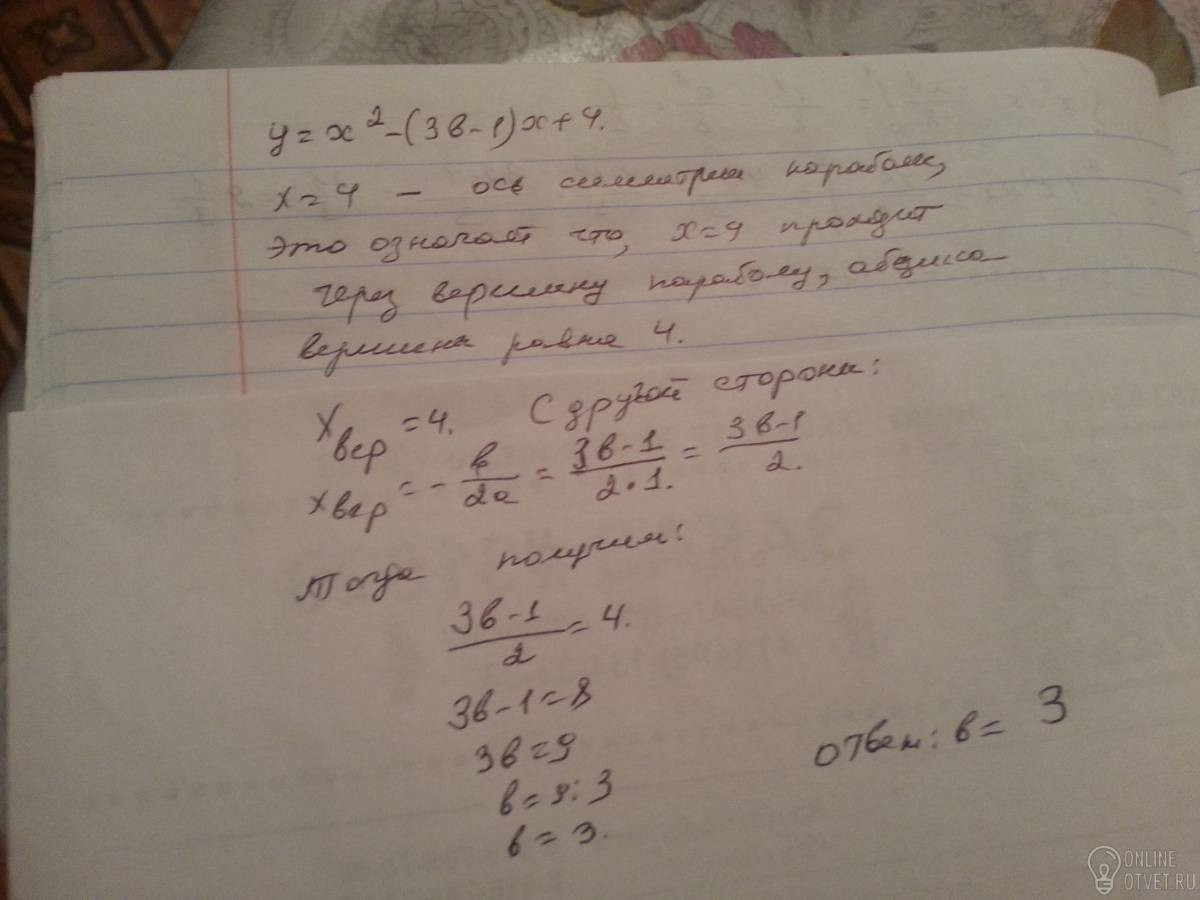 y = x² - (3в-1)x + 4.
x = 4 — ось симметрии параболы,
это означает что, x=4 проходит
через вершину параболу, абцисса
вершина равна 4.
xвер = 4. С другой стороны:
xвер = - в/2a = 3в-1/2·1. = 3в-1/2.
Тогда получим:
3в-1/2 = 4.
3в-1=8
3в=9
в=9:3
в=3.
ответ: в= 3
ONLINE
OTVET.RU